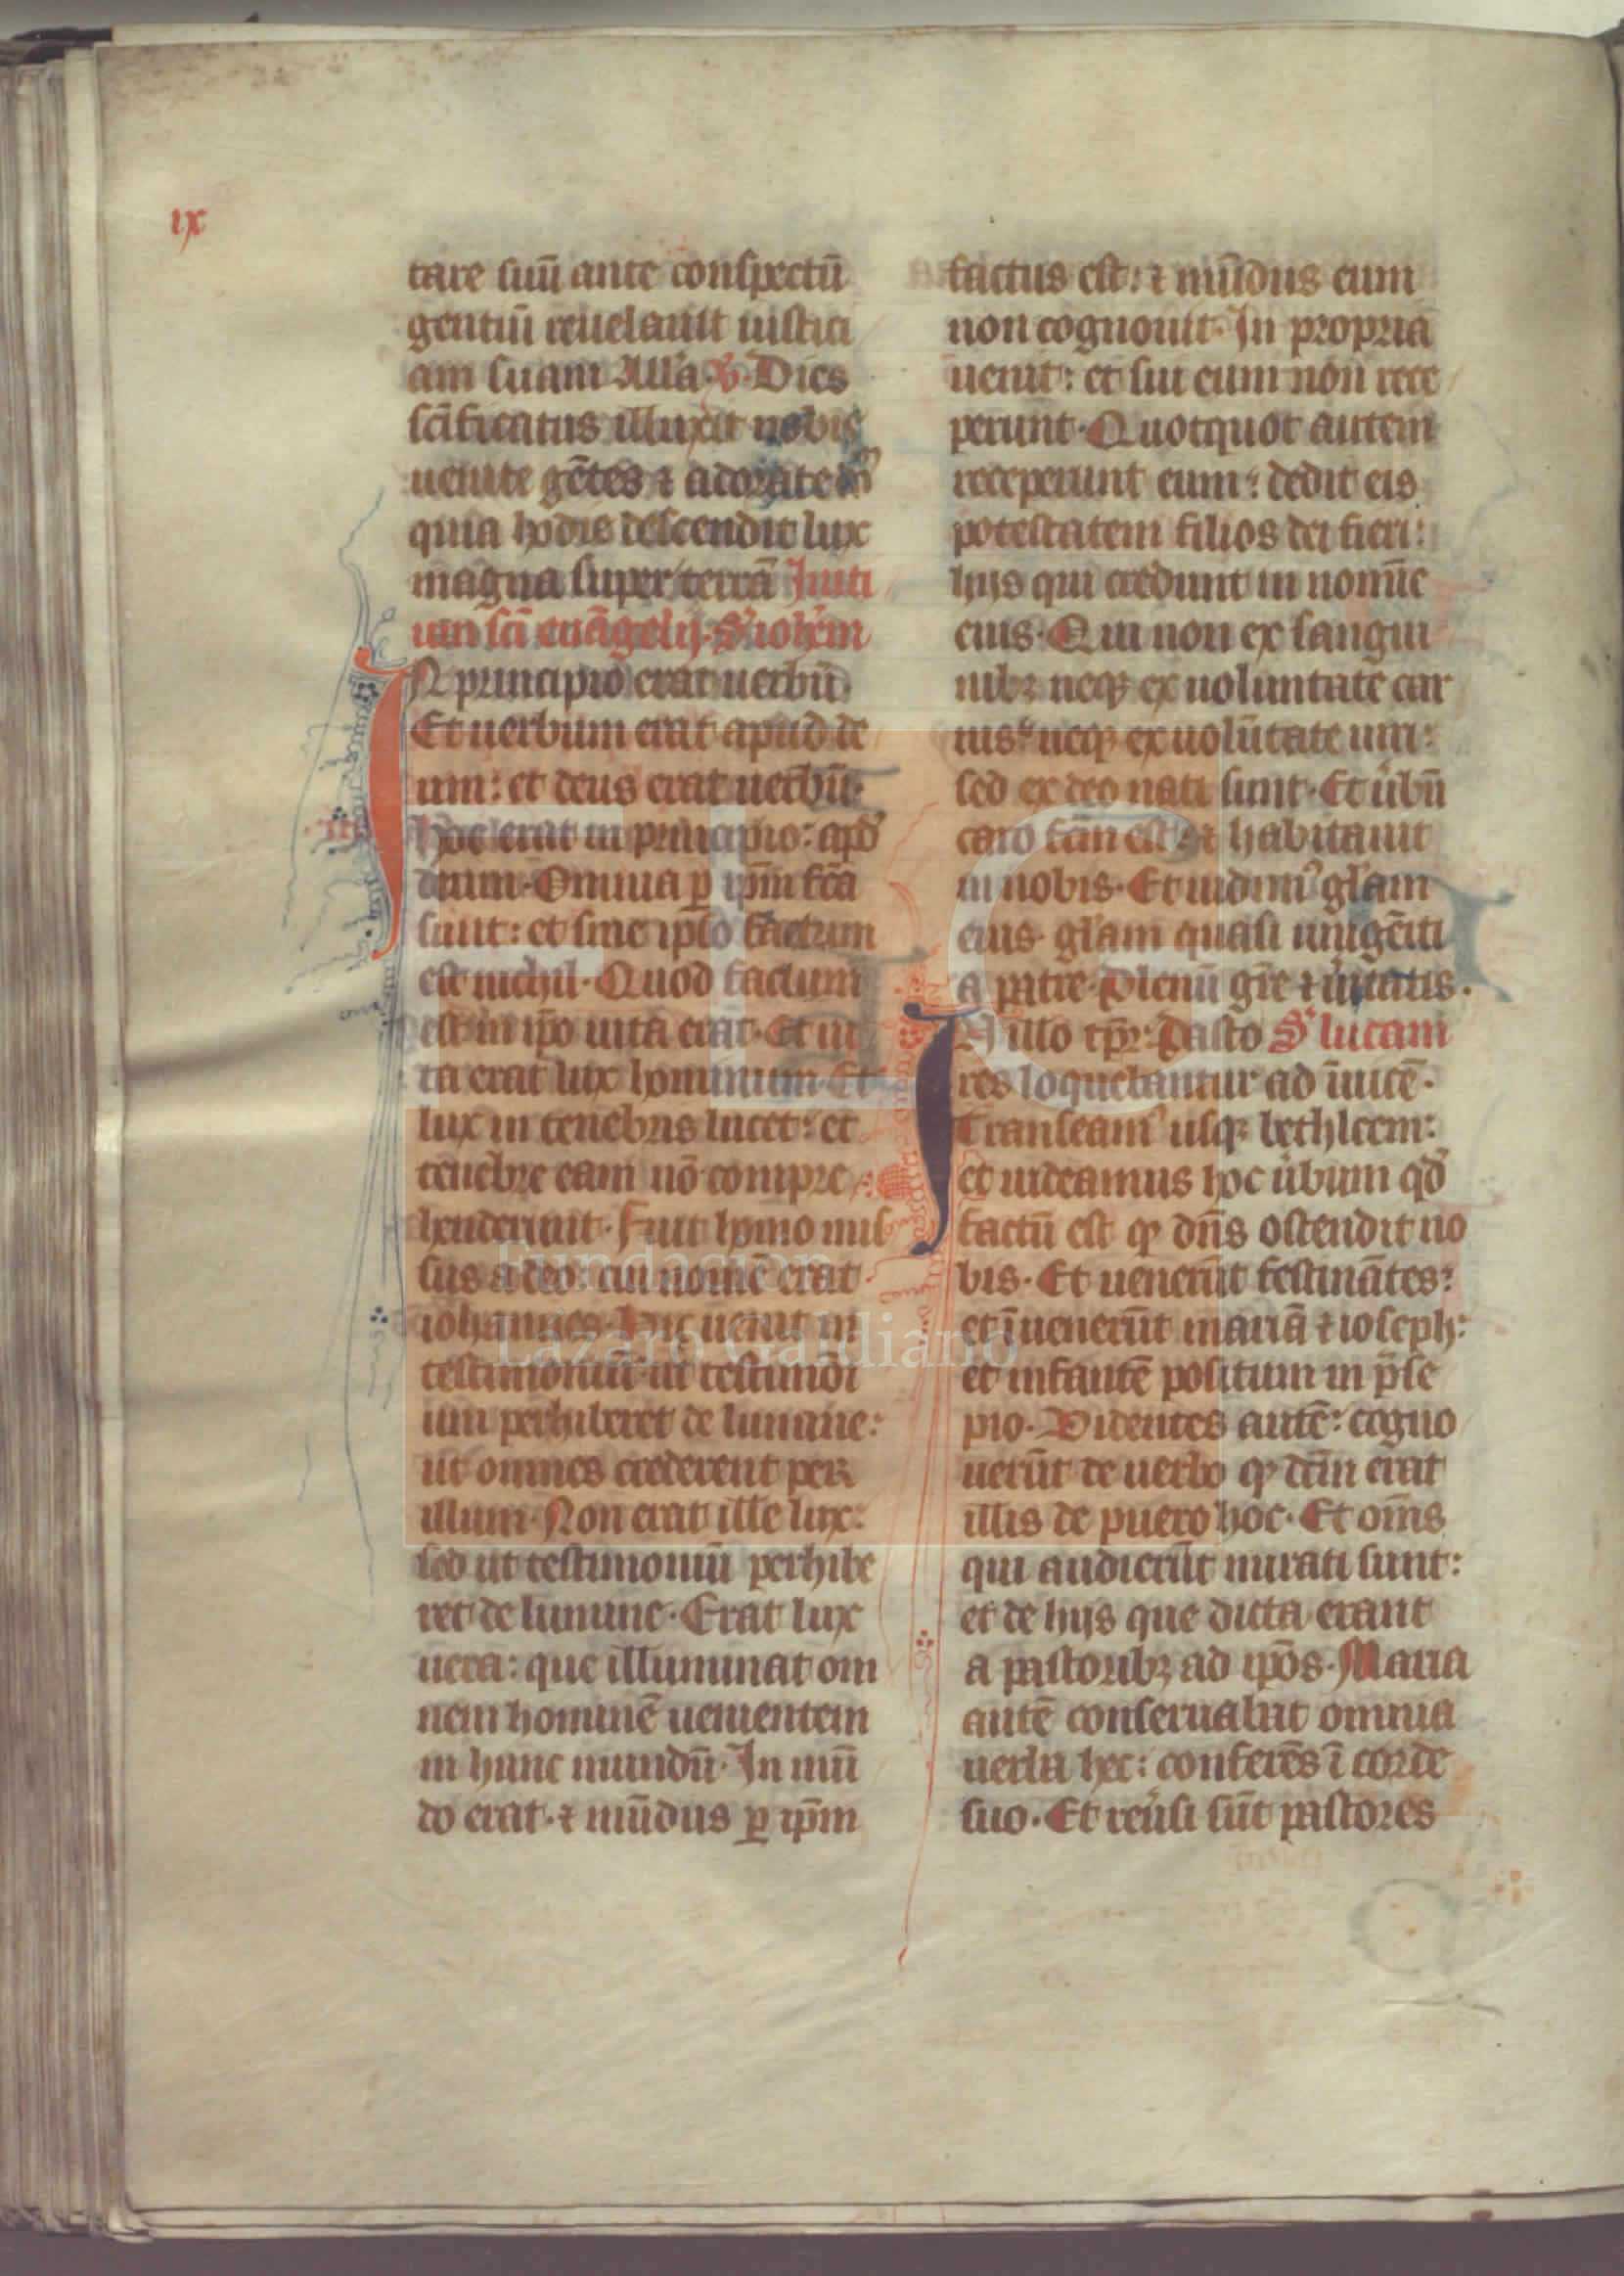 ix
tare suū ante conspectū
gentiū reuelauit iustici
am suam Alla. V. Dies
scīficatus illuxit nobis
uenite gētes ⁊ adorate dn̄m
quia hodie descendit lux
magna super terrā Initi
um scī euāgelij. S' ioh'em
IN principio erat uerbū.
Et uerbum erat apud de
um: et deus erat uerbū.
hoc erat in principio: apd'
deum. Omnia ꝑ ip̄m fcā
sunt: et sine ip̄so factum
est nichil. Quod factum
est in ip̄o uita erat. Et ui
ta erat lux hominum. Et
lux in tenebris lucet: et
tenebre eam nō compre
henderunt. Fuit homo mis
sus a deo: cui nomē erat
iohannes. Hic uenit in
testimoniū: ut testimōi
um perhiberet de lumine:
ut omnes crederent per
illum. Non erat ille lux:
sed ut testimoniū perhibe
ret de lumine. Erat lux
uera: que illuminat om
nem hominē uenientem
in hunc mundū. In mū
do erat. ⁊ mūdus ꝑ ip̄m
factus est: ⁊ mūdus eum
non cognouit. In propria
uenit: et sui eum non rece
perunt. Quotquot autem
receperunt eum: dedit eis
potestatem filios dei fieri:
hijs qui credunt in nomīe
eius. Qui non ex sangui
nibꝫ neqꝫ ex uoluntate car
nis: neqꝫ ex uolūtate uiri:
sed ex deo nati sunt. Et u'bū
caro fcm̄ est: ⁊ habitauit
in nobis. Et uidim' gl'am
eius gl'am quasi unigēiti
a patre. Plenū gr̄e ⁊ u'itatis.
IN illo tp̄r: Pasto S' lucam
res loquebantur ad īuicē.
Transeam' usqꝫ bethleem:
et uideamus hoc u'bum qd'
factū est qꝫ dn̄s ostendit no
bis. Et uenerūt festinātes:
et īuenerūt mariā ⁊ ioseph:
et infantē positum in p̄se
pio. Videntes autē: cogno
uerūt de uerbo qꝫ dc̄m erat
illis de puero hoc. Et om̄s
qui audierūt mirati sunt:
et de hijs que dicta erant
a pastoribꝫ ad ip̄os. Maria
autē conseruabat omnia
uerba hec: conferēs ī corde
suo. Et reu'si sūt pastores
Fundación
Lázaro Galdiano